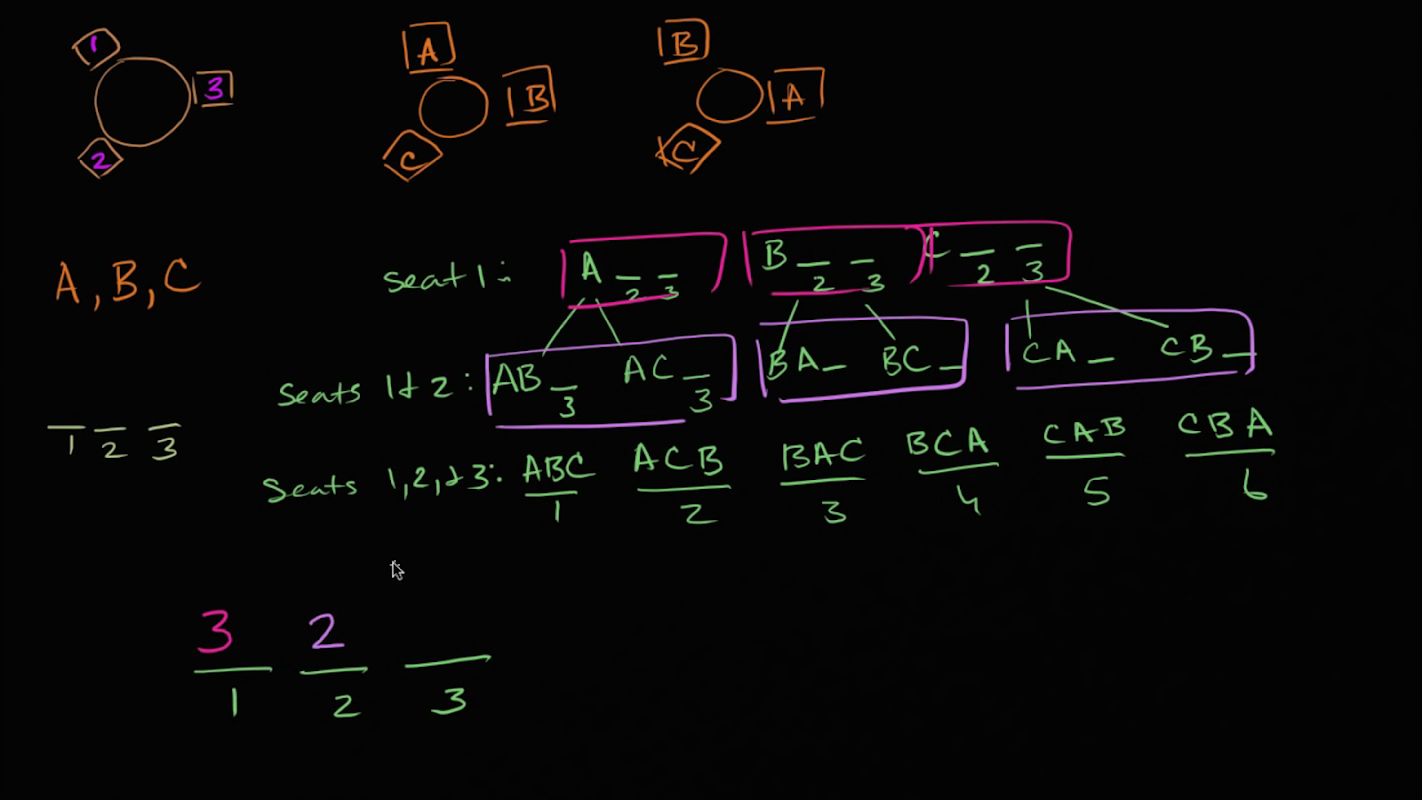 1
3
2
A
B
C
B
A
C
A, B, C
Seat 1: A _ _ B _ _ C _ _
2 3 2 3 2 3
Seats 1 & 2: AB _ AC _ BA _ BC _ CA _ CB _
3 3
1 2 3
Seats 1, 2, & 3: ABC ACB BAC BCA CAB CBA
1 2 3 4 5 6
3 2
1 2 3